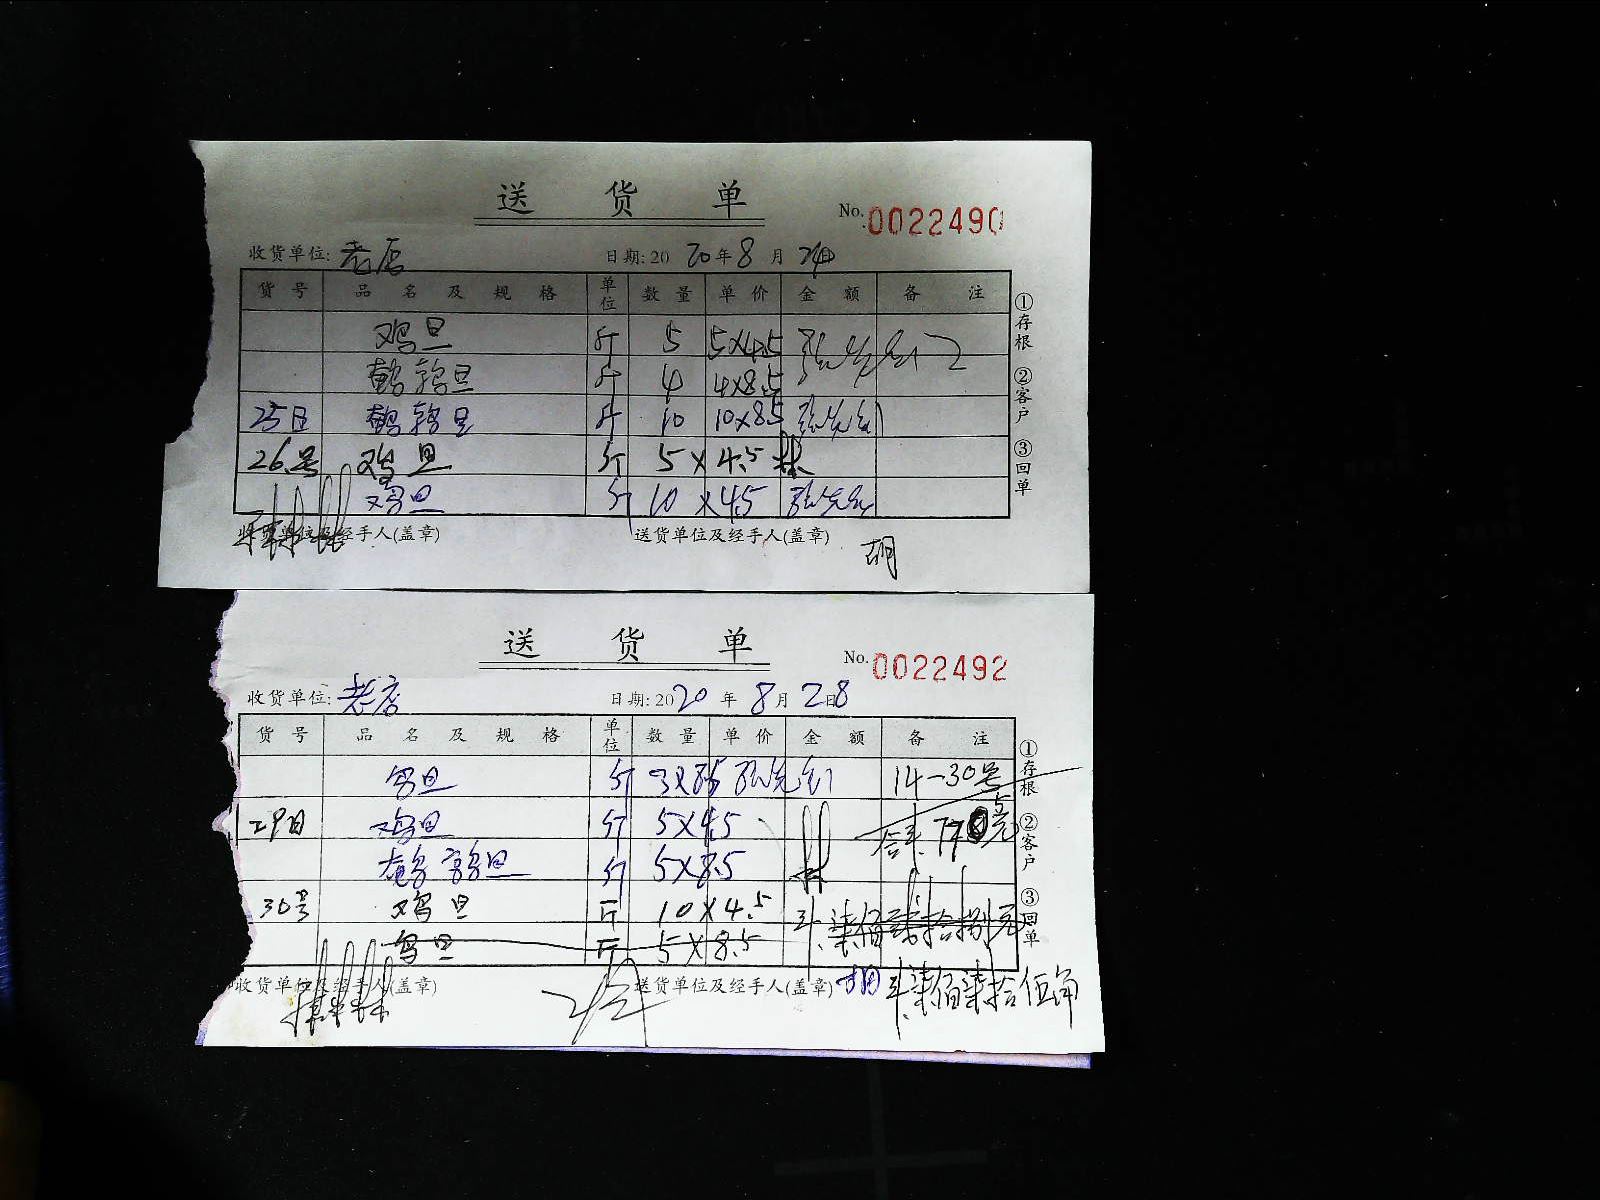 送 货 单
No. 0022490
收货单位: 老店 日期: 2020年8月24日
货号 品名及规格 单位 数量 单价 金额 备注
鸡旦 斤 5 5×4.5
鹌鹑旦 斤 4 4×8.5
25日 鹌鹑旦 斤 10 10×8.5
26号 鸡旦 斤 5×4.5
鸡旦 斤 10×4.5
收货单位及经手人(盖章) 送货单位及经手人(盖章) 胡
①存根 ②客户 ③回单
送 货 单
No. 0022492
收货单位: 老店 日期: 2020年8月28日
货号 品名及规格 单位 数量 单价 金额 备注
旦 斤 3×8.5 14-30号
29日 鸡旦 斤 5×4.5 合计
鹌鹑旦 斤 5×8.5
30号 鸡旦 斤 10×4.5 柒佰柒拾捌元
旦 斤 5×8.5
收货单位及经手人(盖章) 送货单位及经手人(盖章) 胡 柒佰柒拾伍
①存根 ②客户 ③回单